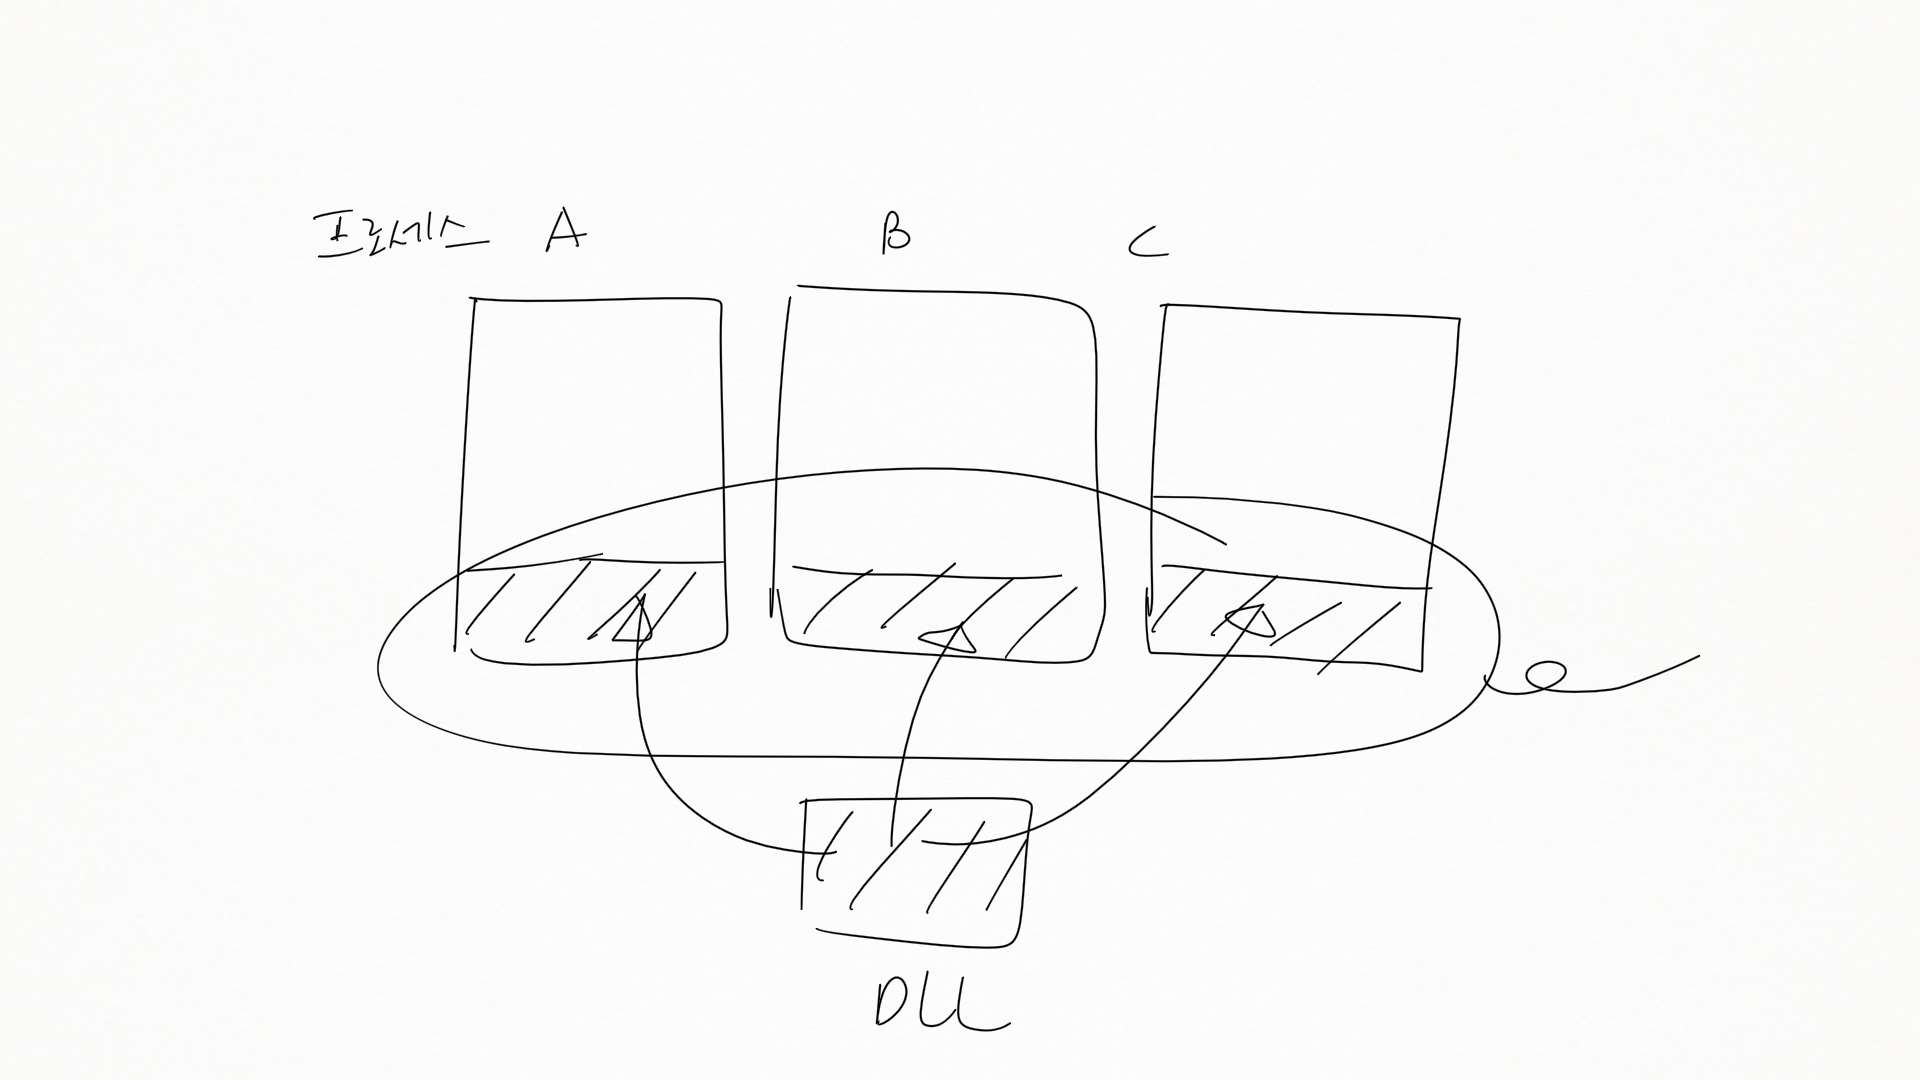 프로세스 A B C
DLL